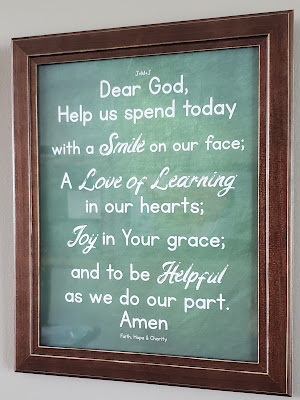 J+M+J
Dear God,
Help us spend today
with a Smile on our face;
A Love of Learning
in our hearts;
Joy in Your grace;
and to be Helpful
as we do our part.
Amen
Faith, Hope & Charity